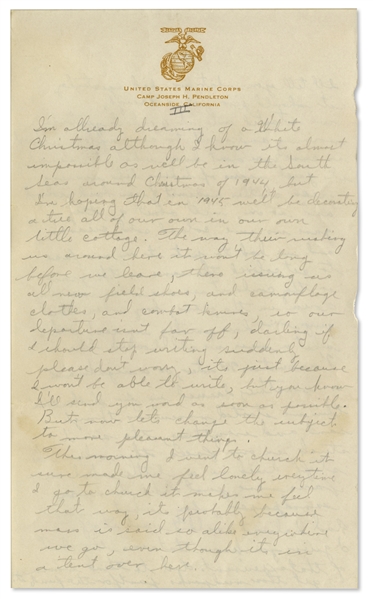 UNITED STATES MARINE CORPS
CAMP JOSEPH H. PENDLETON
OCEANSIDE, CALIFORNIA
III
I'm allready dreaming of a White
Christmas although I know its almost
impossible as we'll be in the South
Seas around Christmas of 1944, but
I'm hoping that in 1945 we'll be decorating
a tree all of our own in our own
little cottage. The way their rushing
us around here it won't be long
before we leave, there issuing us
all new field shoes, and camouflage
clothes, and combat knives, so our
departure isn't far off, darling if
I should stop writing suddenly
please don't worry, it's just because
I won't be able to write, but you know
I'll send you word as soon as possible.
But now lets change the subject
to more pleasant things.
This morning I went to church it
sure made me feel lonely everytime
I go to church it makes me feel
that way, it probably because
mass is said so alike everywhere
we go, even though its in
a tent over here.